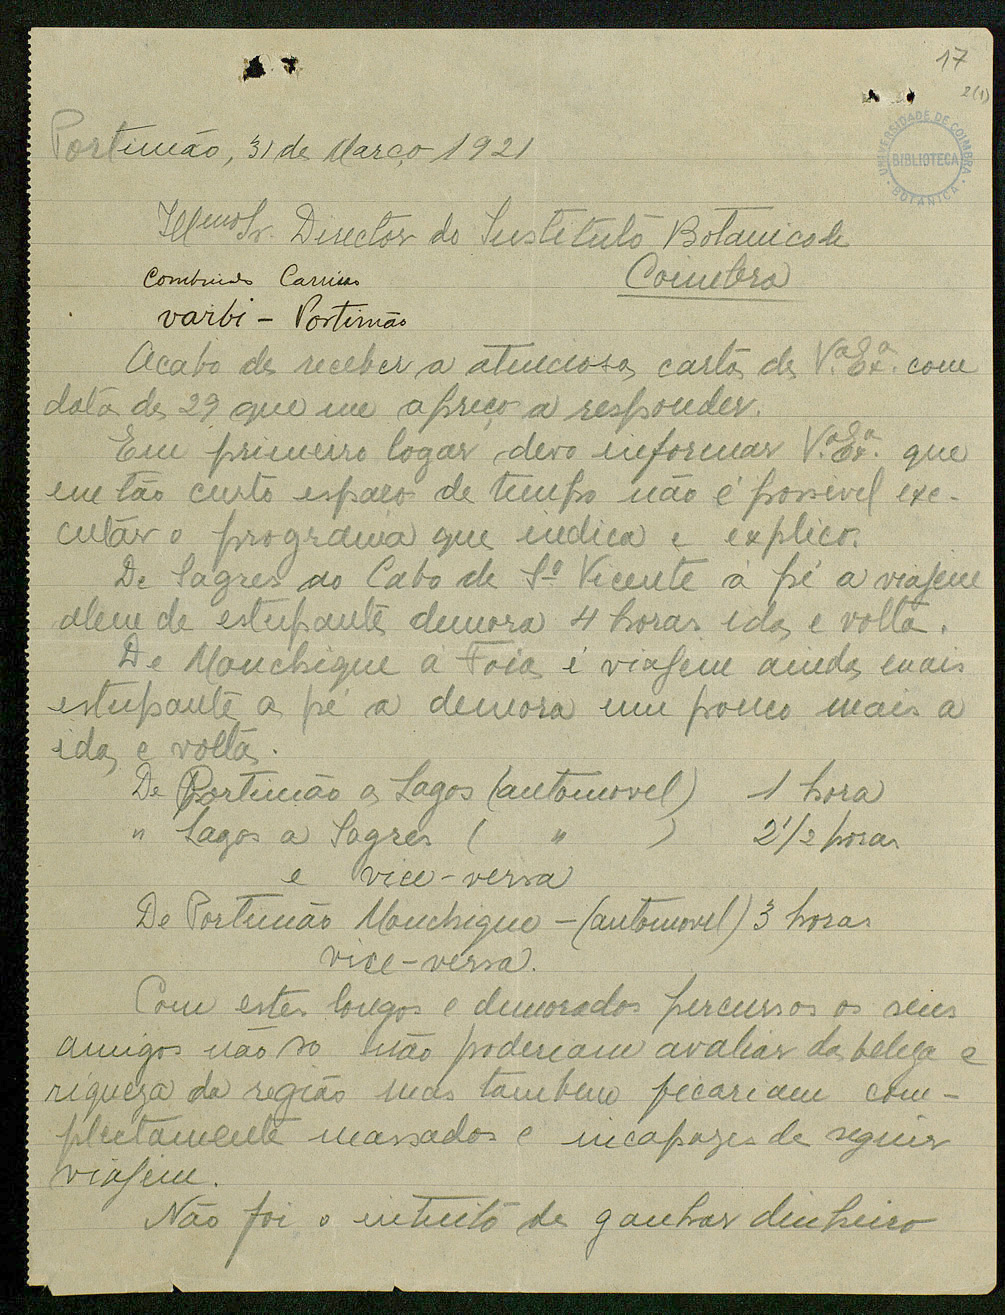 17
2(1)
UNIVERSIDADE DE COIMBRA
BIBLIOTECA
BOTANICA
Portimão, 31 de Março 1921
Illmo Sr. Director do Instituto Botanico de
Coimbra
Carrisso
varbi - Portimão
Acabo de receber a atenciosa carta de V.ª Ex.ª com
data de 29 que me apreço a responder.
Em primeiro logar devo informar V.ª Ex.ª que
em tão curto espaço de tempo não é possivel exe-
cutar o programa que indica e explico.
De Sagres ao Cabo de S.º Vicente a pé a viajem
alem de estupante demora 4 horas ida e volta.
De Monchique á Foia é viajem ainda mais
estupante a pé a demora um pouco mais a
ida e volta.
De Portimão a Lagos (automovel) 1 hora
" Lagos a Sagres ( " ) 2 1/2 horas
e vice-versa
De Portimão Monchique - (automovel) 3 horas
vice-versa.
Com estes longos e demorados percursos os seus
amigos não so não poderiam avaliar da beleza e
riqueza da região mas tambem ficariam com-
pletamente massados e incapazes de seguir
viajem.
Não foi o intuito de ganhar dinheiro